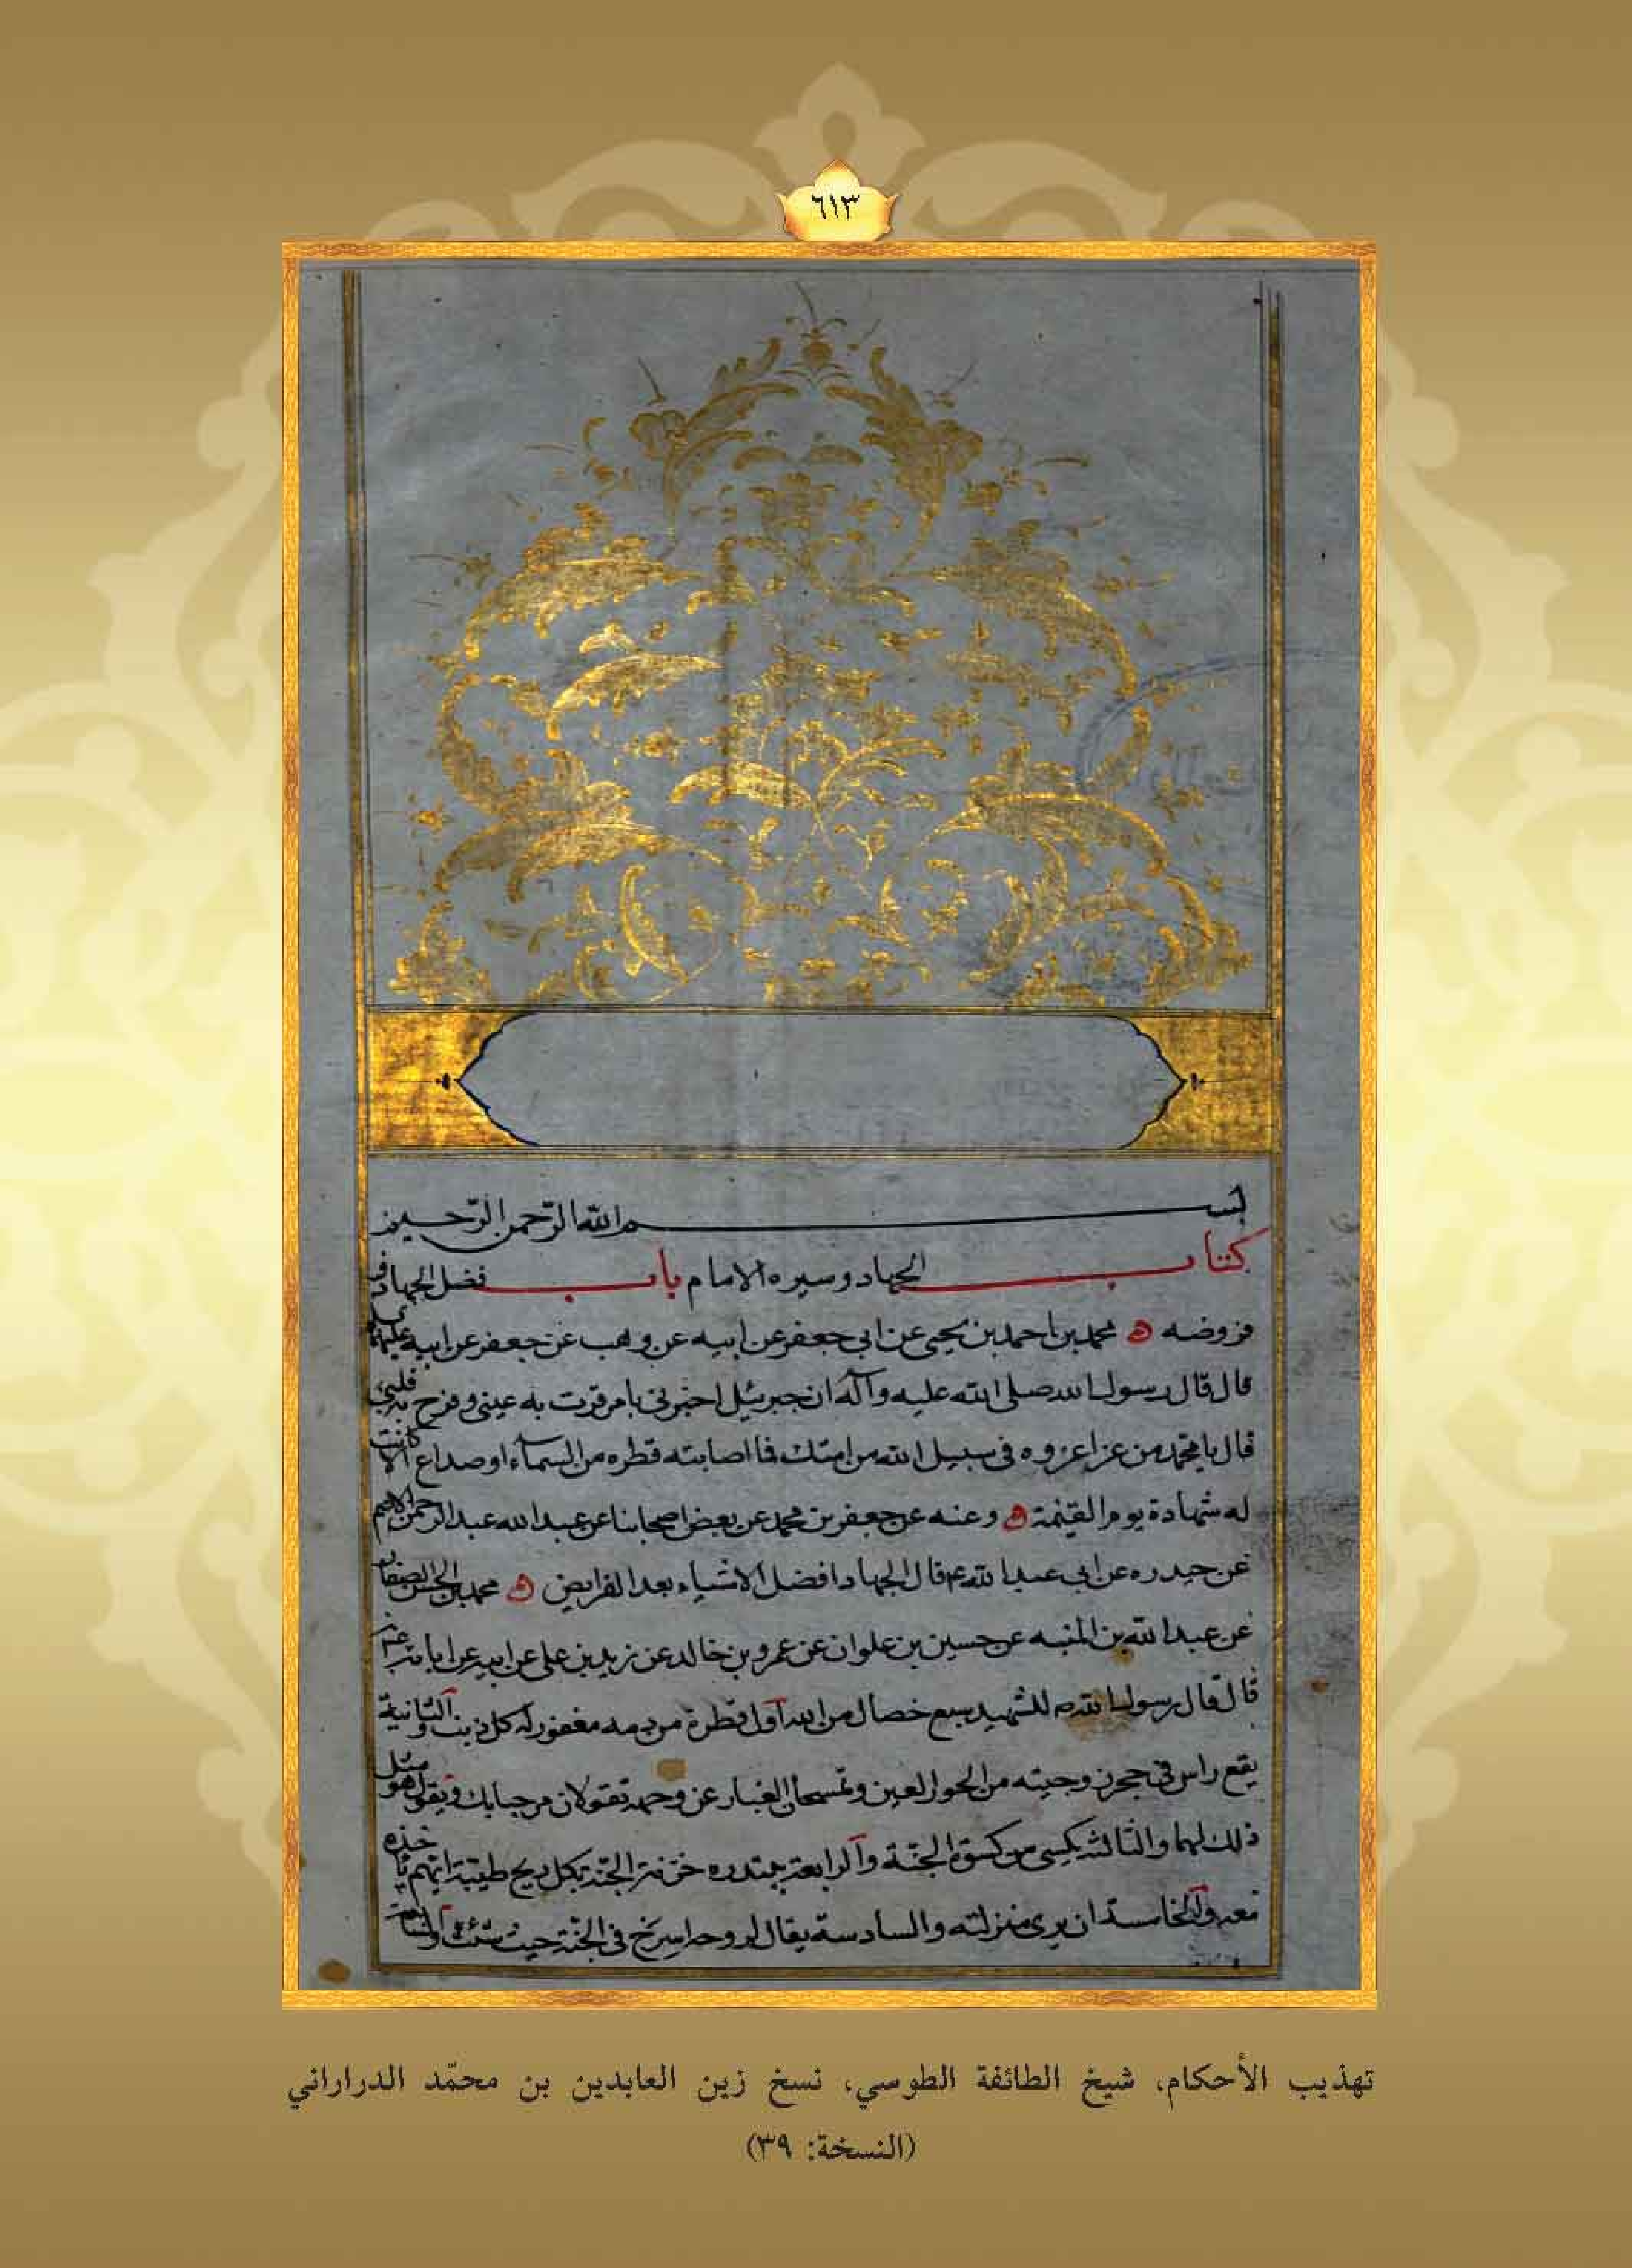 ٦١٣
بسم الله الرحمن الرحيم
كتاب الجهاد وسيره الامام باب فضل الجهاد و
فروضه محمد بن احمد بن يحيى عن ابي جعفر عن ابيه عن وهب عن جعفر عن ابيه عليهما
قال قال رسول الله صلى الله عليه وآله ان جبرئيل اخبرني بامر قرت به عيني وفرح به قلبي
قال يا محمد من غزا غزوه في سبيل الله من امتك فما اصابته قطره من السماء او صداع الا كانت
له شهادة يوم القيمة وعنه عن جعفر بن محمد عن بعض اصحابنا عن عبد الله عبد الرحمن الاصم
عن حيدره عن ابي عبد الله ع قال الجهاد افضل الاشياء بعد الفرايض محمد بن الحسن الصفار
عن عبد الله بن المنبه عن حسين بن علوان عن عمرو بن خالد عن زيد بن علي عن ابيه عن ابائه
قال قال رسول الله ص للشهيد سبع خصال من الله اول قطرة من دمه مغفور له كل ذنب والثانية
يقع راس في حجر زوجيته من الحور العين وتمسحان الغبار عن وجهه تقولان مرحبا بك ويقول هو مثل
ذلك لهما والثالثة يكسى من كسوة الجنة والرابعة يبتدره خزنة الجنة بكل ريح طيبة ايهم ياخذه
معه والخامسة ان يرى منزلته والسادسة يقال لروحه اسرح في الجنة حيث شئت والسابعة
تهذيب الأحكام، شيخ الطائفة الطوسي، نسخ زين العابدين بن محمّد الدراراني
(النسخة: ٣٩)